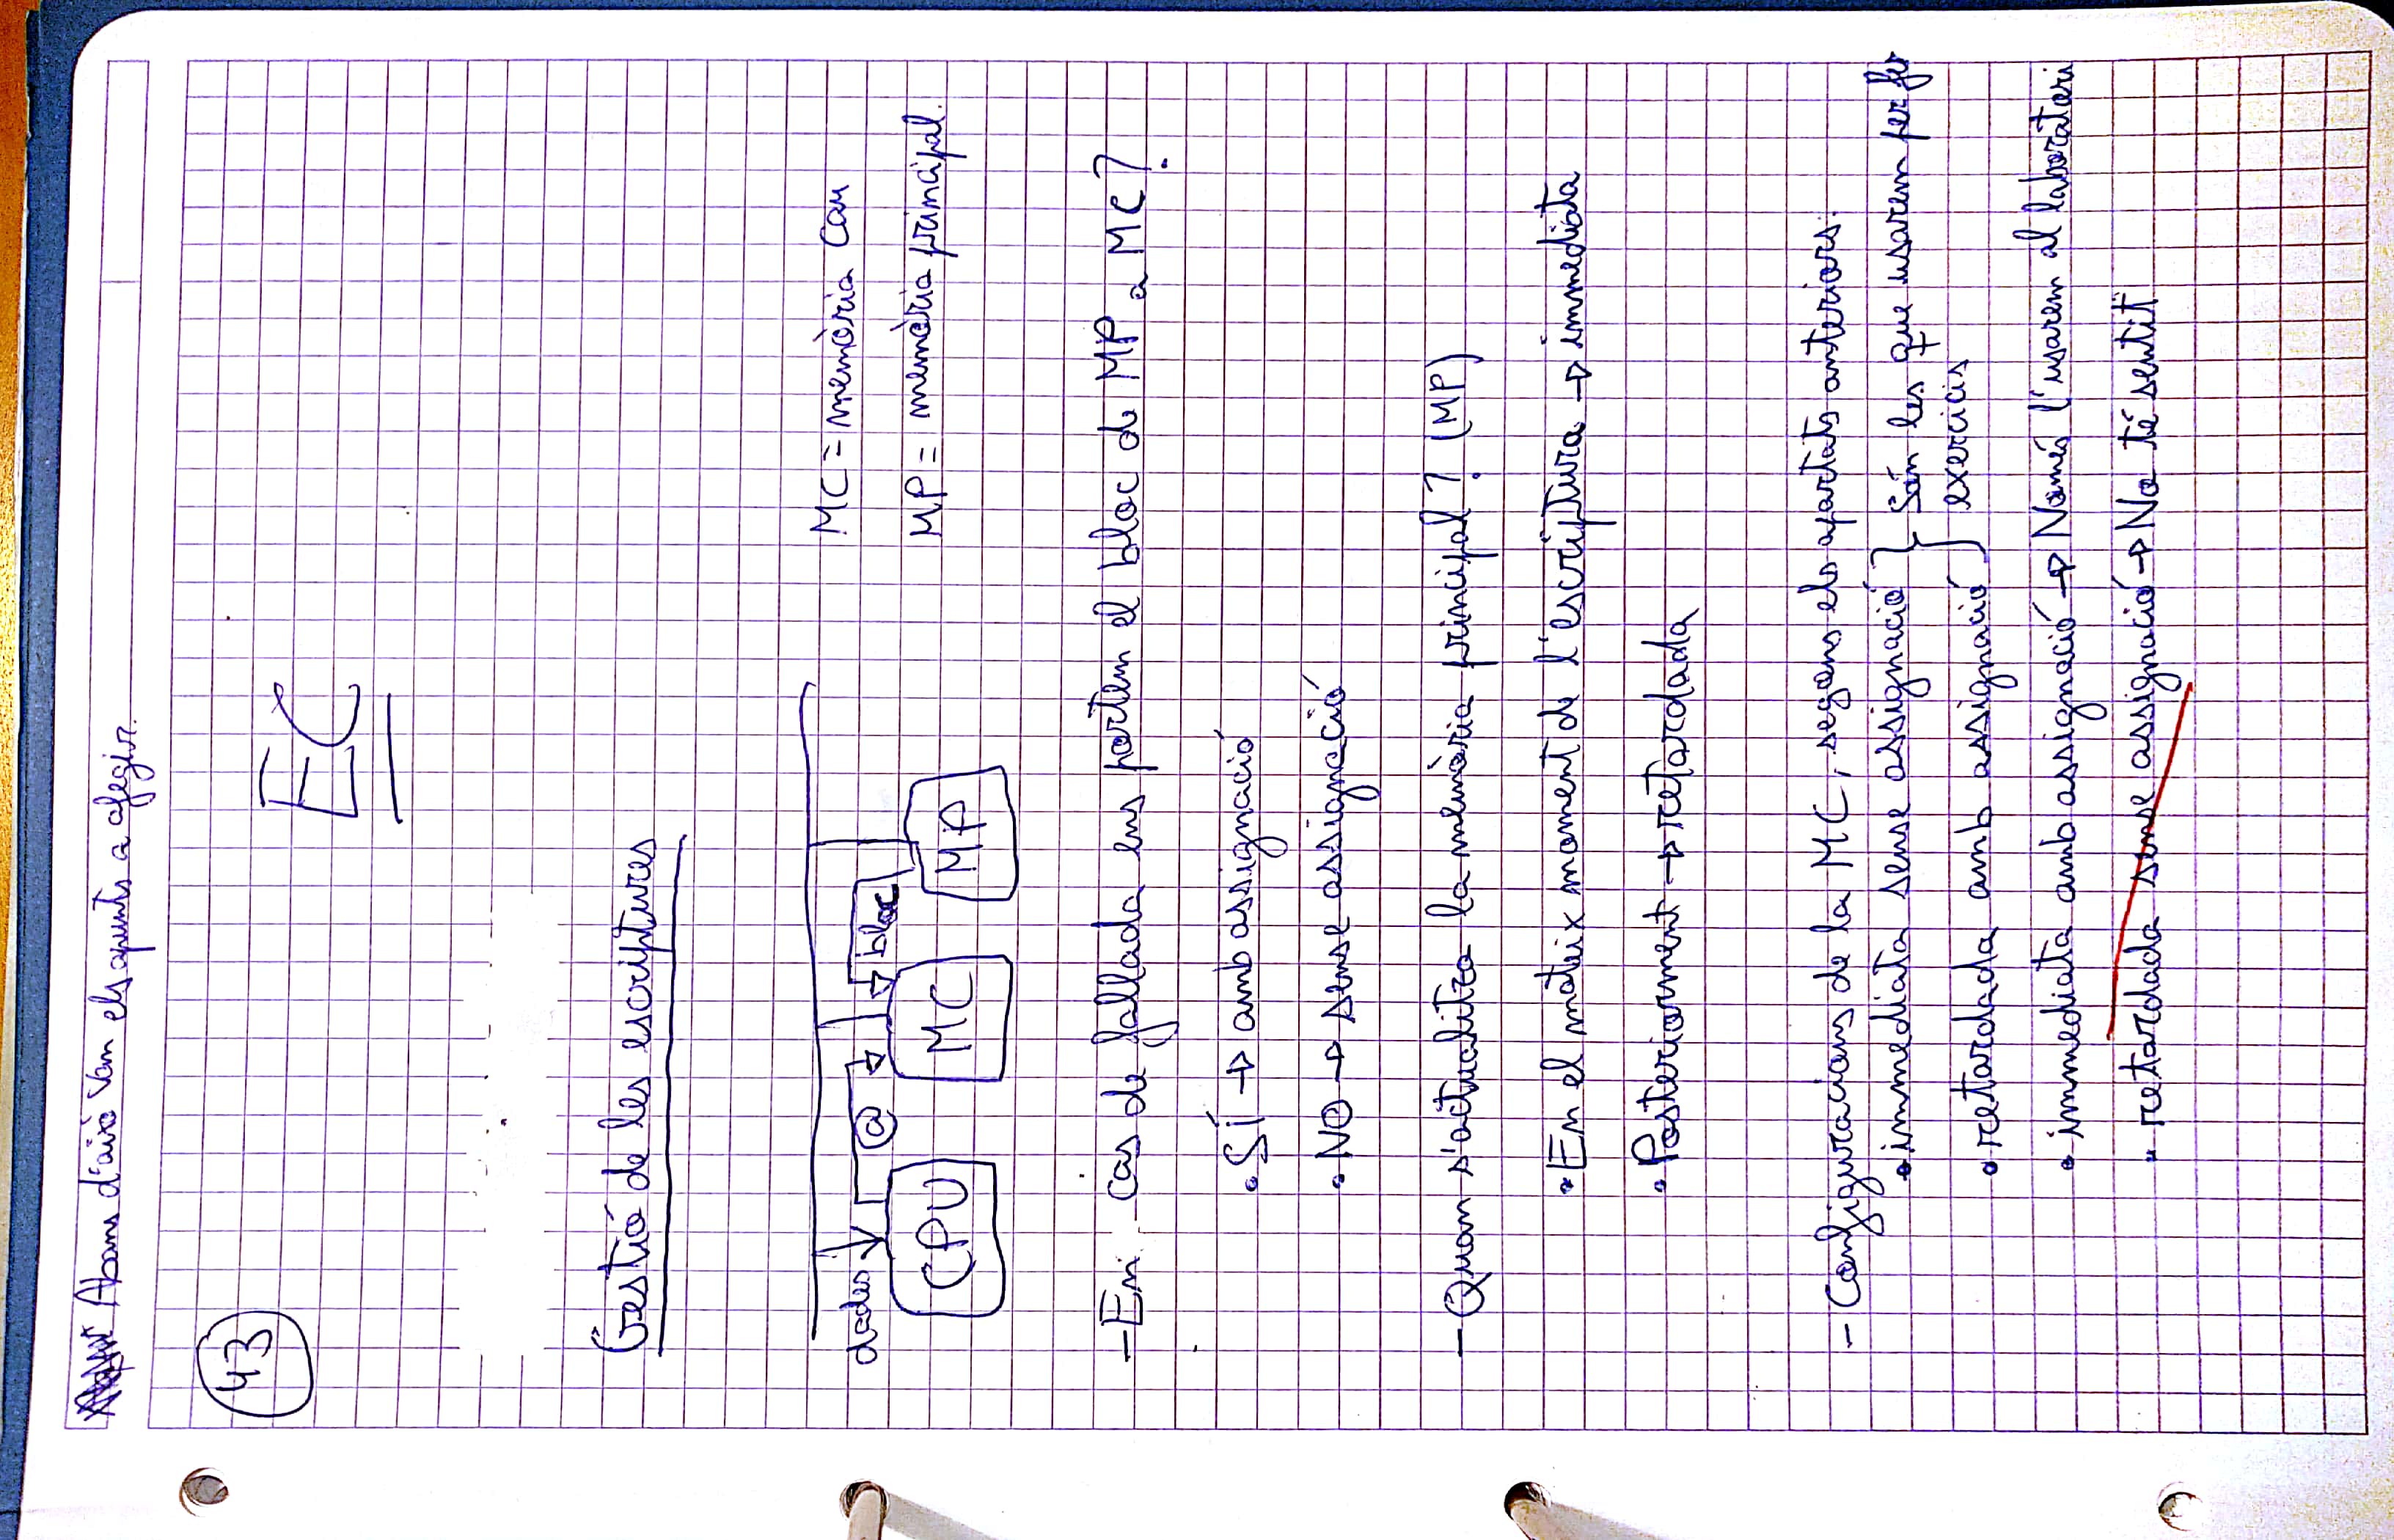 Abans d'això van els apunts a afegir.
43
EC
Gestió de les escriptures
dades
@
bloc
CPU
MC
MP
MC = memòria Cau
MP = memòria principal.
- En cas de fallada ens portem el bloc de MP a MC?
• SÍ → amb assignació
• NO → sense assignació
- Quan s'actualitza la memòria principal? (MP)
• En el mateix moment de l'escriptura → immediata
• Posteriorment → retardada
- Configuracions de la MC, segons els apartats anteriors:
• immediata sense assignació } Són les que usarem per fer
• retardada amb assignació } exercicis
• immediata amb assignació → Només l'usarem al laboratori
• retardada sense assignació → No té sentit